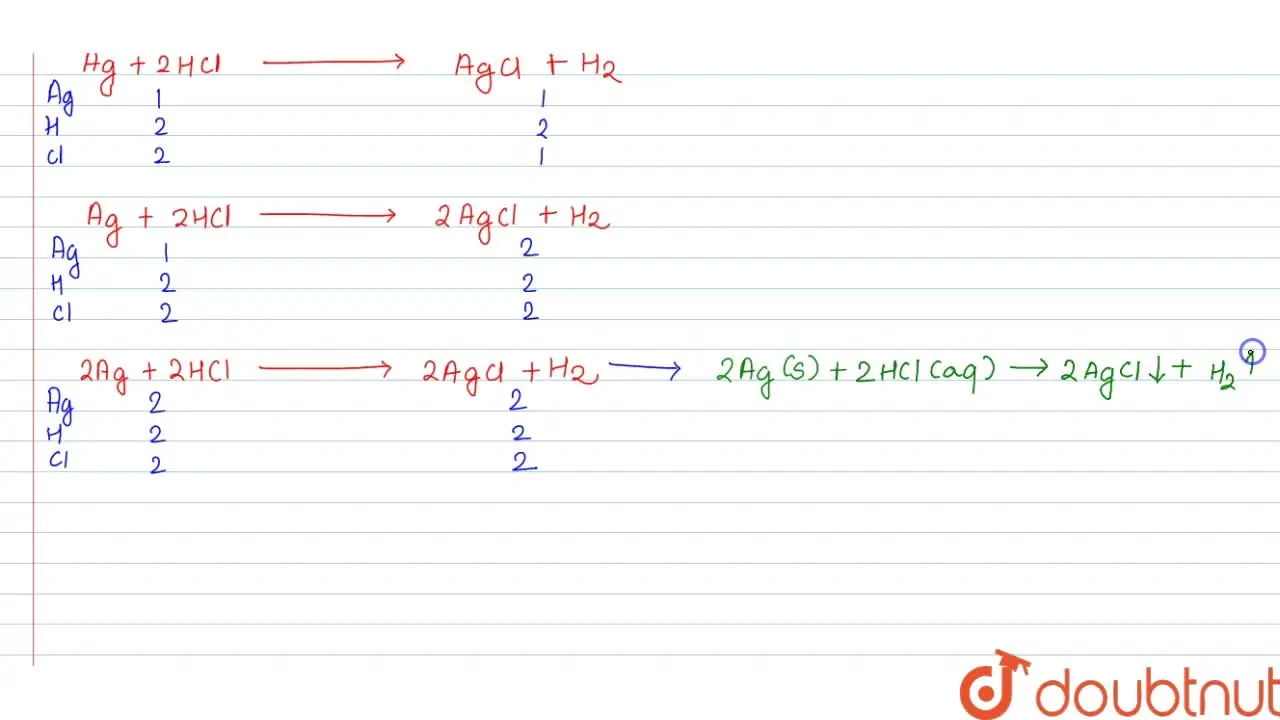 Ag + 2HCl ⟶ AgCl + H2
Ag 1 1
H 2 2
Cl 2 1
Ag + 2HCl ⟶ 2AgCl + H2
Ag 1 2
H 2 2
Cl 2 2
2Ag + 2HCl ⟶ 2AgCl + H2 ⟶ 2Ag(s) + 2HCl(aq) ⟶ 2AgCl↓ + H2↑
Ag 2 2
H 2 2
Cl 2 2
doubtnut